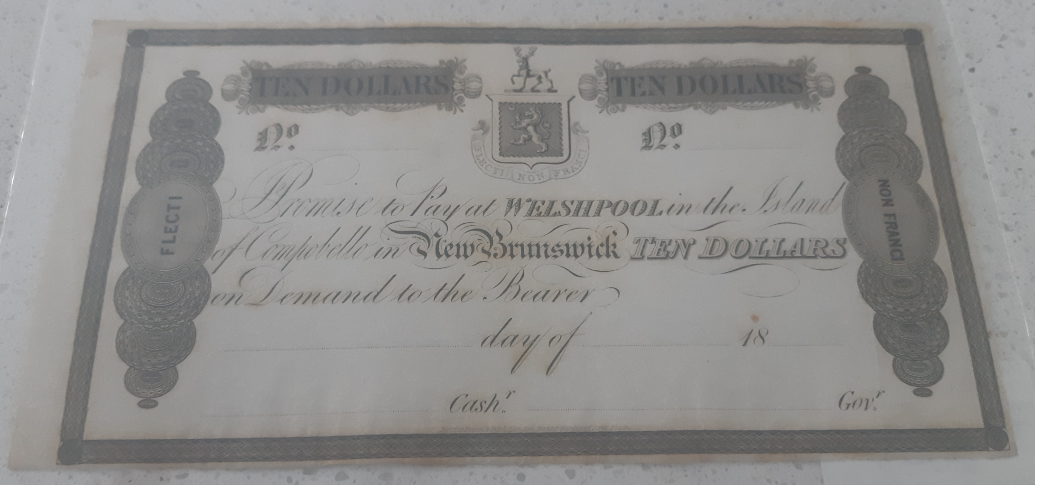 TEN DOLLARS TEN DOLLARS
No. No.
FLECTI NON FRANGI
I Promise to Pay at WELSHPOOL in the Island
of Compobello in New Brunswick TEN DOLLARS
on Demand to the Bearer
FLECTI
NON FRANGI
day of 18
Cashr. Govr.